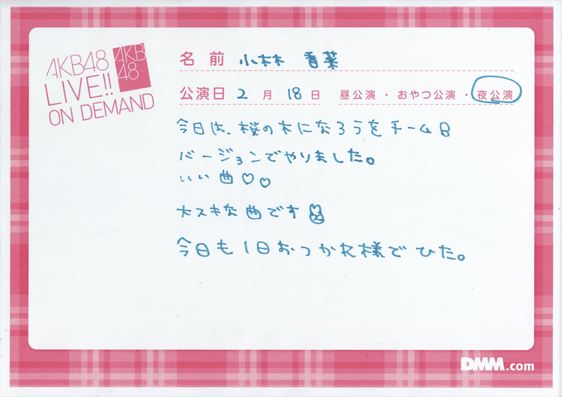 AKB48
LIVE!!
ON DEMAND
AKB
48
名前 小林 香菜
公演日 2月18日 昼公演・おやつ公演・夜公演
今日は、桜の木になろうをチームB
バージョンでやりました。
いい曲♡♡
大スキな曲です
今日も1日おつかれ様でひた。
DMM.com